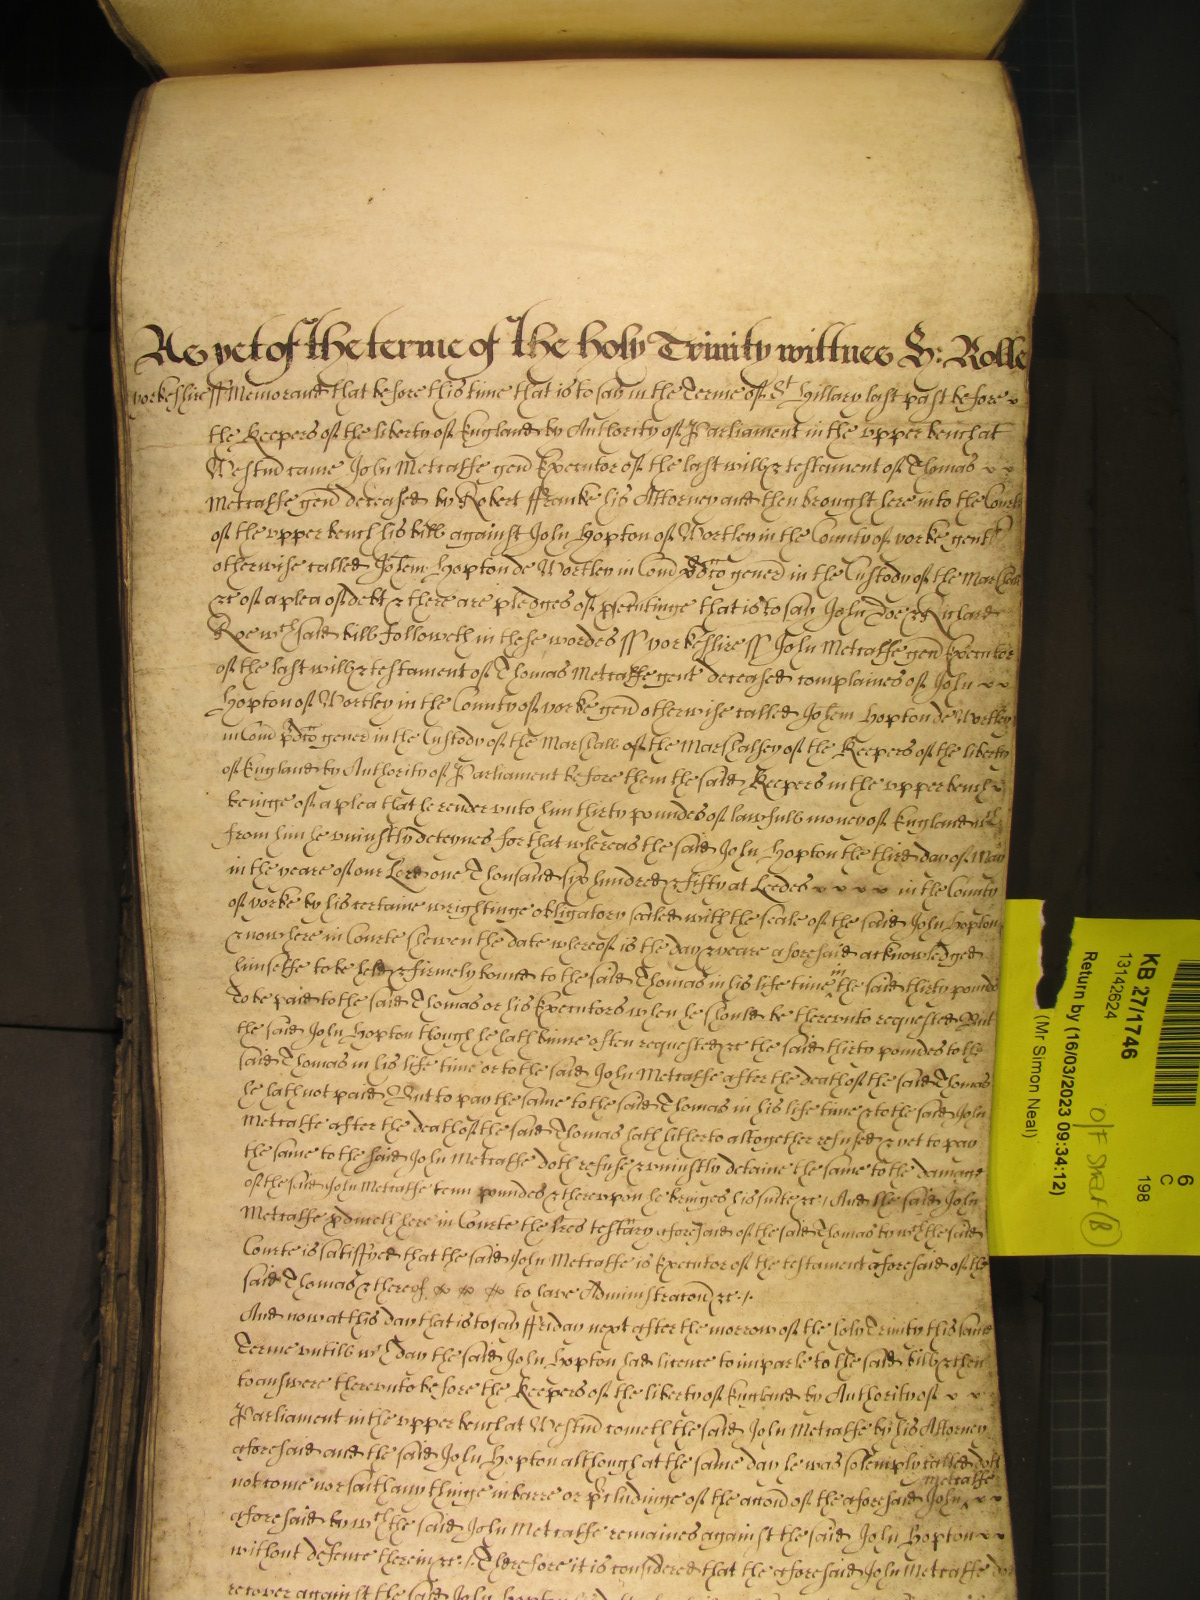 As yet of the terme of the holy Trinity wittnes H: Rolle
yorkeshire ss Memorand that before this time that is to say in the Terme of St Hillary last past before
the Keepers of the liberty of England by Authority of Parliament in the upper bench at
Westm came John Metcalfe gen Executor of the last will & testament of Thomas
Metcalfe gen deceased by Robert ffranke his Attorney and then brought here into the Court
of the upper bench his bill against John Hopton of Wortley in the County of yorke gent
otherwise called Johem Hopton de Wortley in Com gener in the Custody of the Marshall
&c of a plea of debt & there are pledges of psecutinge that is to say John Doe & Richard
Roe wch said bill followeth in these wordes ss yorkeshire ss John Metcalfe gen Executor
of the last will & testament of Thomas Metcalfe gent deceased complaines of John
Hopton of Wortley in the County of yorke gen otherwise called Johem Hopton de Wortley
in Com pdco gener in the Custody of the Marshall of the Marshalsey of the Keepers of the liberty
of England by Authority of Parliament before them the said Keepers in the upper bench
beinge of a plea that he render unto him thirty poundes of lawfull money of England wch
from him he uniustly deteynes for that whereas the said John Hopton the third day of May
in the yeare of our Lord one Thousand six hundred & fifty at Leedes in the County
of yorke by his certaine wrightinge obligatory sealed with the seale of the said John Hopton
& now here in Courte shewen the date whereof is the day & yeare aforesaid acknowledged
himselfe to be held & firmely bound to the said Thomas in his life time in the said thirty pounds
To be paid to the said Thomas or his Executors when he should be thereunto requested But
the said John Hopton though he hath binne often requested &c the said thirty poundes to the
said Thomas in his life time or to the said John Metcalfe after the death of the said Thomas
he hath not paid But to pay the same to the said Thomas in his life time & to the said John
Metcalfe after the death of the said Thomas hath hitherto altogether refused & yet to pay
the same to the said John Metcalfe doth refuse & uniustly detaine the same to the damage
of the said John Metcalfe tenn poundes & thereupon he bringes his suite &c And the said John
Metcalfe here in Courte the lres testary aforesaid of the said Thomas by wch the said
Courte is satisfyed that the said John Metcalfe is Executor of the testament aforesaid of the
said Thomas & thereof to have Administracon &c
And now at this day that is to say ffriday next after the morrow of the holy Trinity this same
Terme untill wch day the said John Hopton had licence to imparle to the said bill & then
to answere thereunto before the Keepers of the liberty of England by Authority of
Parliament in the upper bench at Westm cometh the said John Metcalfe by his Attorney
aforesaid and the said John Hopton although at the same day he was solemply called doth
not come nor saith any thinge in barre or pcludinge of the accon of the aforesaid John Metcalfe
aforesaid by wch the said John Metcalfe remaines against the said John Hopton
without defence therein &c Therefore it is considered that the aforesaid John Metcalfe do
recover against the said John Hopton
KB 27/1746
13142624
Return by (16/03/2023 09:34:12)
(Mr Simon Neal)
6
C
198